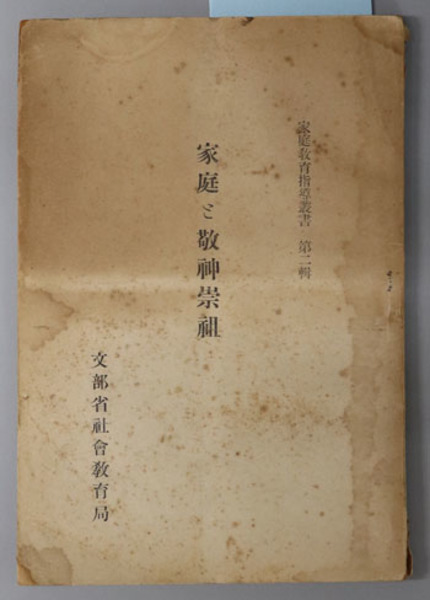 家庭教育指導叢書 第二輯
家庭と敬神崇祖
文部省社會教育局